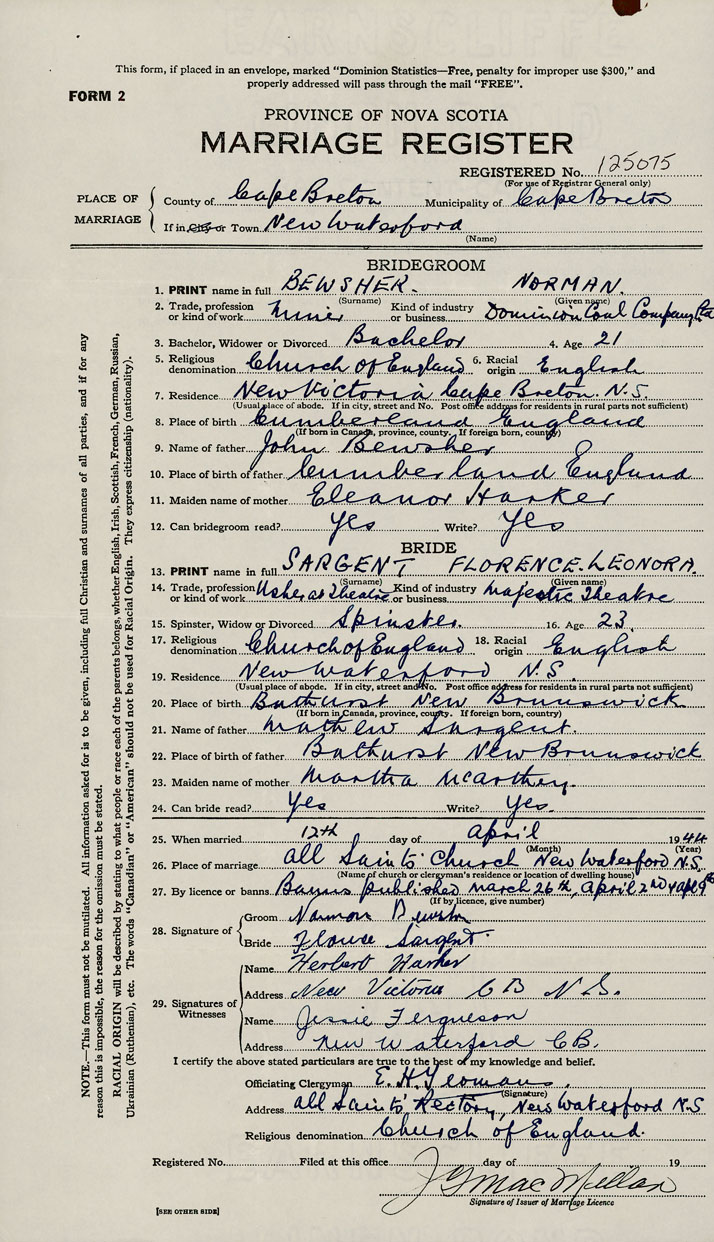 This form, if placed in an envelope, marked “Dominion Statistics—Free, penalty for improper use $300,” and
properly addressed will pass through the mail “FREE”.
FORM 2
PROVINCE OF NOVA SCOTIA
MARRIAGE REGISTER
REGISTERED No. 125075
(For use of Registrar General only)
PLACE OF MARRIAGE
County of Cape Breton Municipality of Cape Breton
If in City or Town New Waterford
(Name)
BRIDEGROOM
1. PRINT name in full BEWSHER. NORMAN.
(Surname) (Given name)
2. Trade, profession or kind of work Miner Kind of industry or business Dominion Coal Company Ltd
3. Bachelor, Widower or Divorced Bachelor 4. Age 21
5. Religious denomination Church of England 6. Racial origin English
7. Residence New Victoria Cape Breton. N.S.
(Usual place of abode. If in city, street and No. Post office address for residents in rural parts not sufficient)
8. Place of birth Cumberland England
(If born in Canada, province, county. If foreign born, country)
9. Name of father John Bewsher
10. Place of birth of father Cumberland England
11. Maiden name of mother Eleanor Harker
12. Can bridegroom read? Yes Write? Yes
BRIDE
13. PRINT name in full SARGENT FLORENCE. LEONORA.
(Surname) (Given name)
14. Trade, profession or kind of work Usher at Theatre Kind of industry or business Majestic Theatre
15. Spinster, Widow or Divorced Spinster. 16. Age 23
17. Religious denomination Church of England 18. Racial origin English
19. Residence New Waterford N.S.
(Usual place of abode. If in city, street and No. Post office address for residents in rural parts not sufficient)
20. Place of birth Bathurst New Brunswick
(If born in Canada, province, county. If foreign born, country)
21. Name of father Mathew Sargent.
22. Place of birth of father Bathurst New Brunswick
23. Maiden name of mother Martha McCarthy.
24. Can bride read? Yes Write? Yes.
25. When married 12th day of April 1944
(Month) (Year)
26. Place of marriage All Saints' Church New Waterford N.S.
(Name of church or clergyman's residence or location of dwelling house)
27. By licence or banns Banns published March 26th, April 2nd & Apl 9th
(If by licence, give number)
28. Signature of
Groom Norman Bewsher
Bride Florence Sargent.
29. Signatures of Witnesses
Name Herbert Harker
Address New Victoria CB N.S.
Name Jessie Ferguson
Address New Waterford CB.
I certify the above stated particulars are true to the best of my knowledge and belief.
Officiating Clergyman E. H. Yeomans.
(Signature)
Address All Saints' Rectory, New Waterford N.S
Religious denomination Church of England.
Registered No. Filed at this office day of 19
J G MacMillan
Signature of Issuer of Marriage Licence
[SEE OTHER SIDE]
NOTE.—This form must not be mutilated. All information asked for is to be given, including full Christian and surnames of all parties, and if for any
reason this is impossible, the reason for the omission must be stated.
RACIAL ORIGIN will be described by stating to what people or race each of the parents belongs, whether English, Irish, Scottish, French, German, Russian,
Ukrainian (Ruthenian), etc. The words “Canadian” or “American” should not be used for Racial Origin. They express citizenship (nationality).